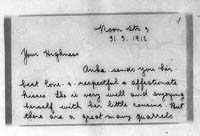 1
Noon Str 3
31.3.1912
Your Highness
Anka sends you her
best love & respectful & affectionate
kisses. She is very well and enjoying
herself with her little cousins. But
there are a great many quarrels